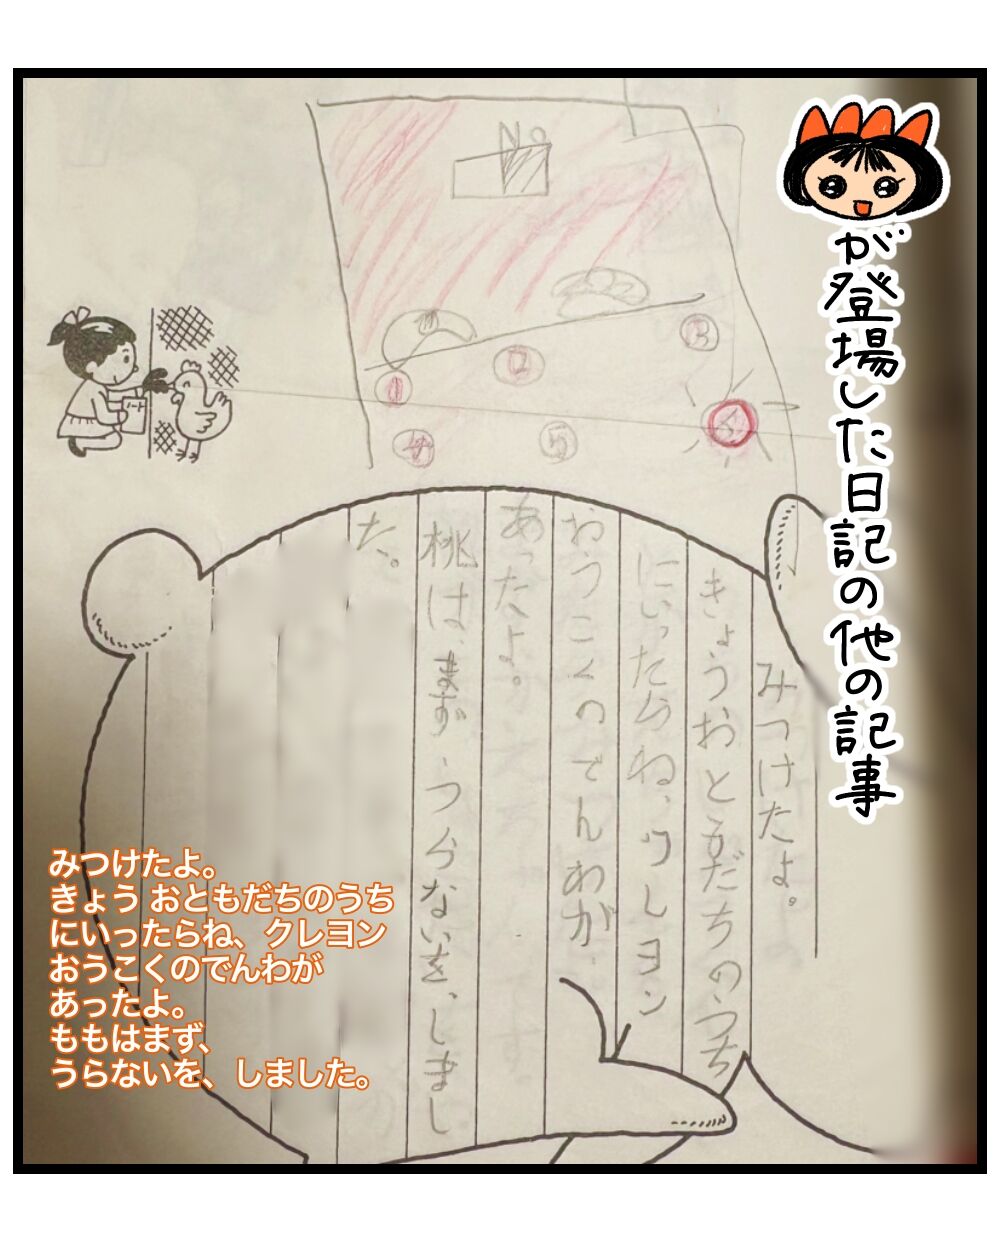 が登場した日記の他の記事
No
1
2
3
5
みつけたよ。
きょうおともだちのうち
にいったらね、クレヨン
おうこくのでんわが
あったよ。
桃は、まず、うらないを、しまし
た。
ノート
みつけたよ。
きょう おともだちのうち
にいったらね、クレヨン
おうこくのでんわが
あったよ。
ももはまず、
うらないを、しました。